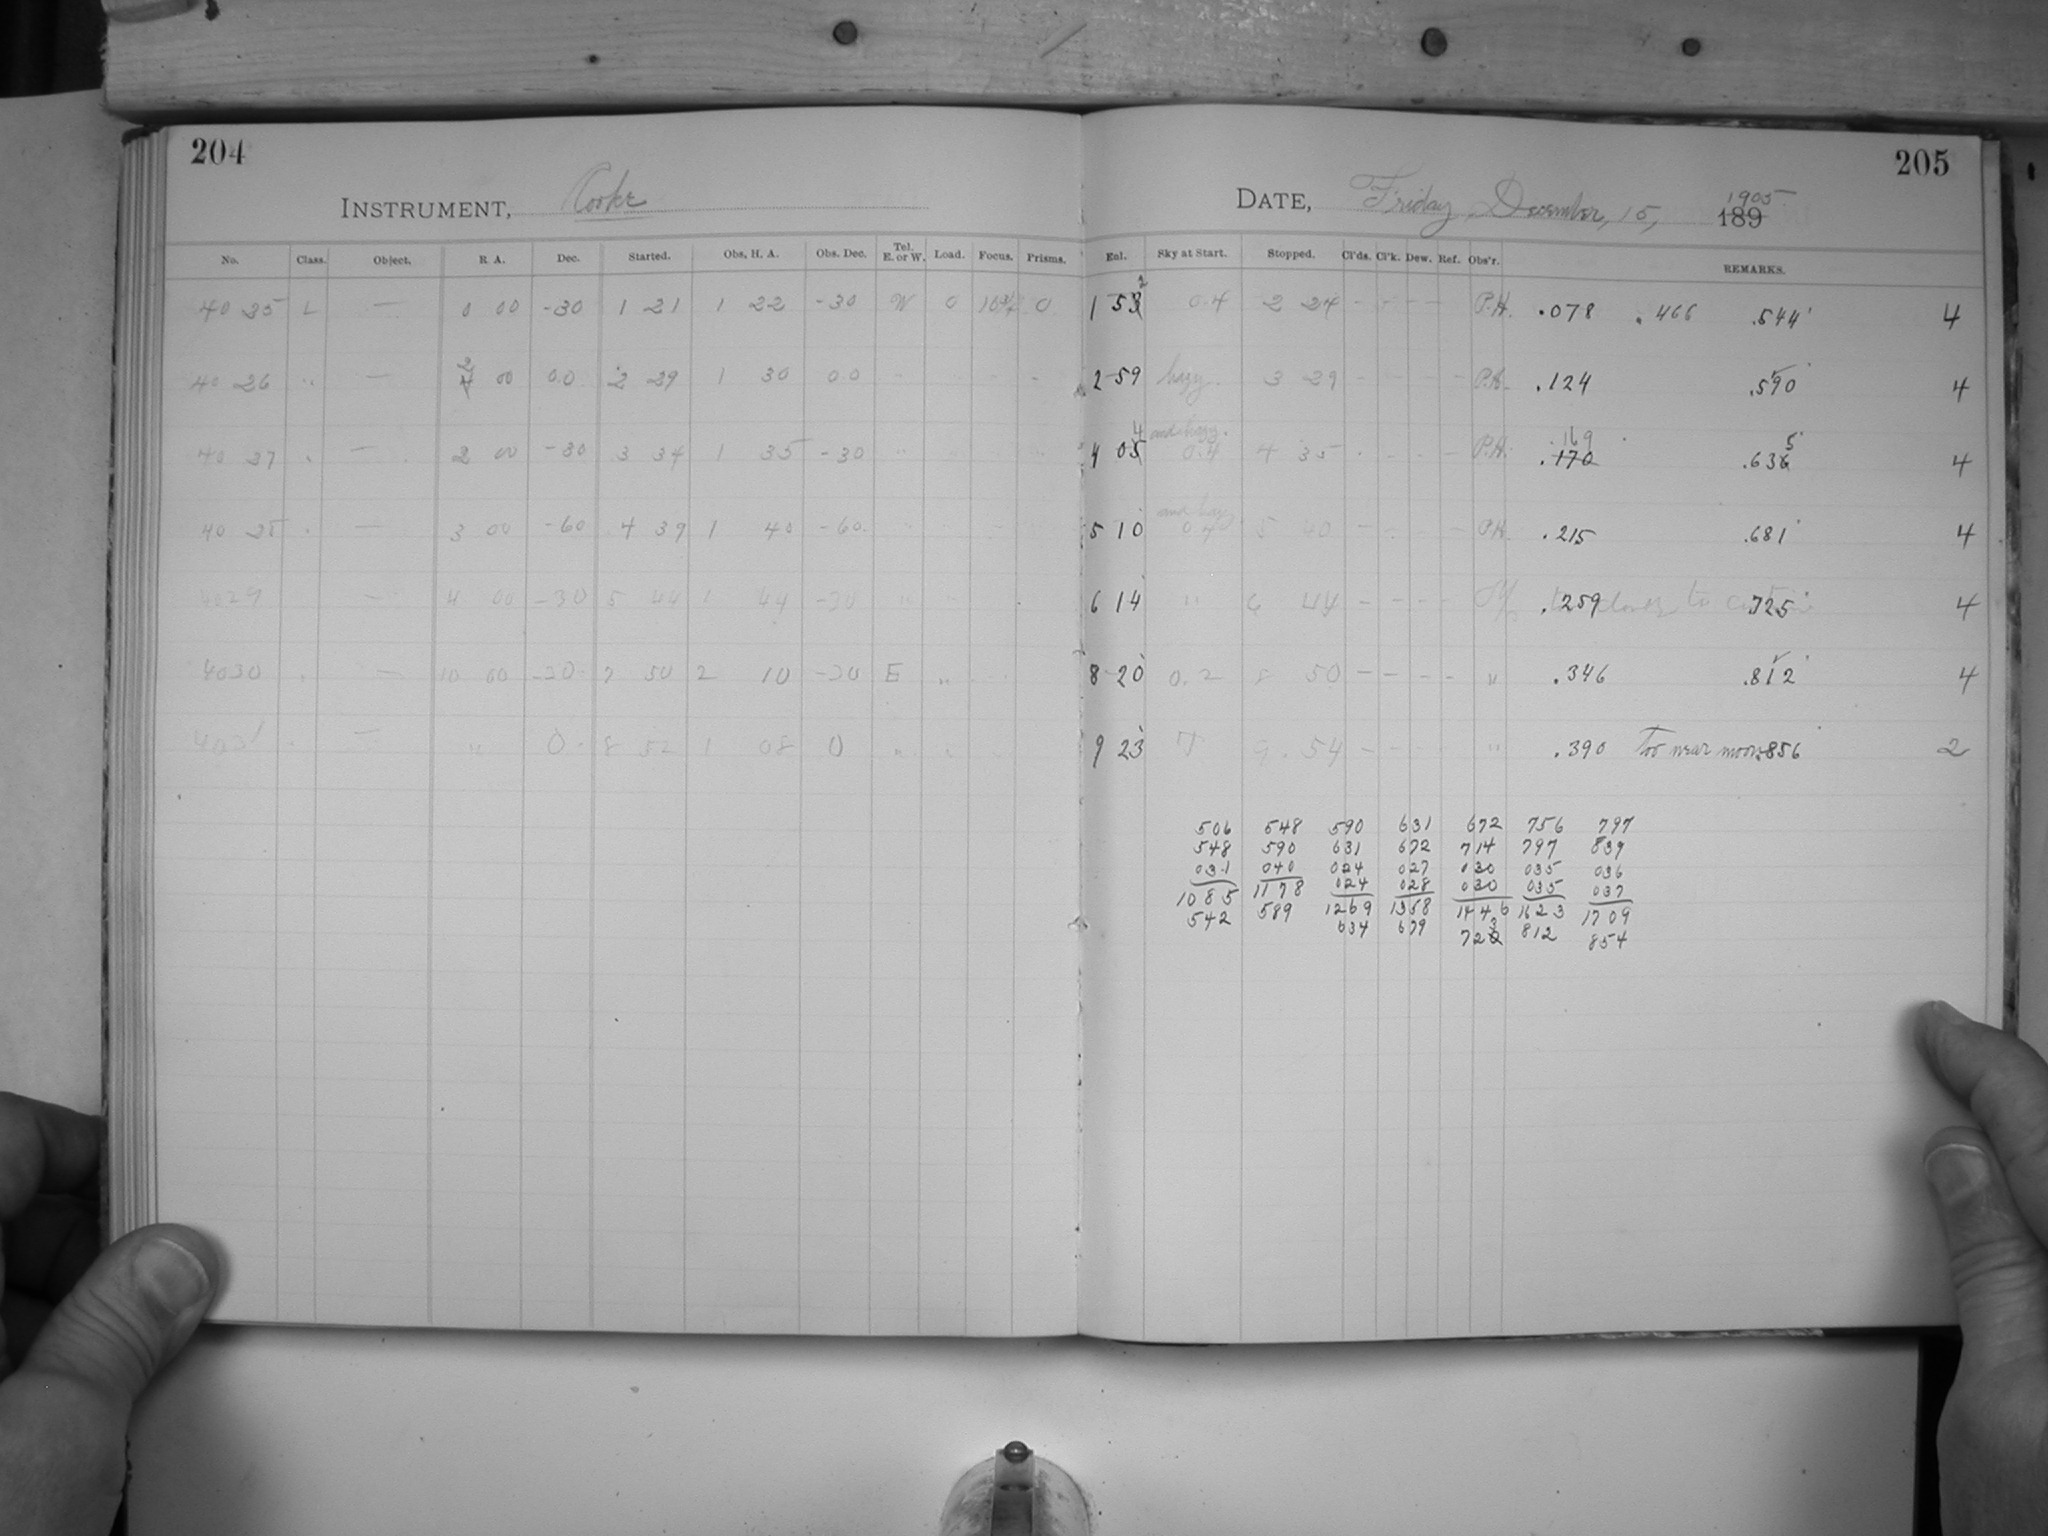 204
205
INSTRUMENT, Cooke
DATE, Friday, December, 15, 1905 189
No. Class. Object. R. A. Dec. Started. Obs. H. A. Obs. Dec. Tel. E. or W. Load. Focus. Prisms. Enl. Sky at Start. Stopped. Cl'ds. Cl'k. Dew. Ref. Obs'r. REMARKS.
40 25 L — 0 00 -30 1 21 1 22 -30 W 0 10 3/4 0 1 532 0.4 2 24 - - - - P.H. .078 .466 .544 4
40 26 " — 2 00 00 2 29 1 30 00 " - 2 59 hazy. 3 29 - - - - P.H. .124 .590 4
40 27 " — 2 00 -30 3 34 1 35 -30 " 4 054 0.4 and hazy. 4 35 - - - - P.H. .170 .169 .636 5 4
40 28 " — 3 00 -60 4 39 1 40 -60 5 10 0.4 and hazy 5 40 - - - - P.H. .215 .681 4
4029 — 4 00 -30 5 44 1 44 -30 " " 6 14 " 6 44 - - - - .259 .725 4
4030 " — 10 00 -30 7 50 2 10 -30 E " 8 20 0.2 8 50 - - - - " .346 .812 4
4031 " — " 0 8 52 1 08 0 " " 9 23 9 54 - - - - " .390 Too near moon .856 2
506 548 590 631 672 756 797
548 590 631 672 714 797 839
031 040 024 027 030 035 036
024 028 030 035 037
1085 1178 1269 1358 1446 1623 1709
542 589 634 679 723 812 854